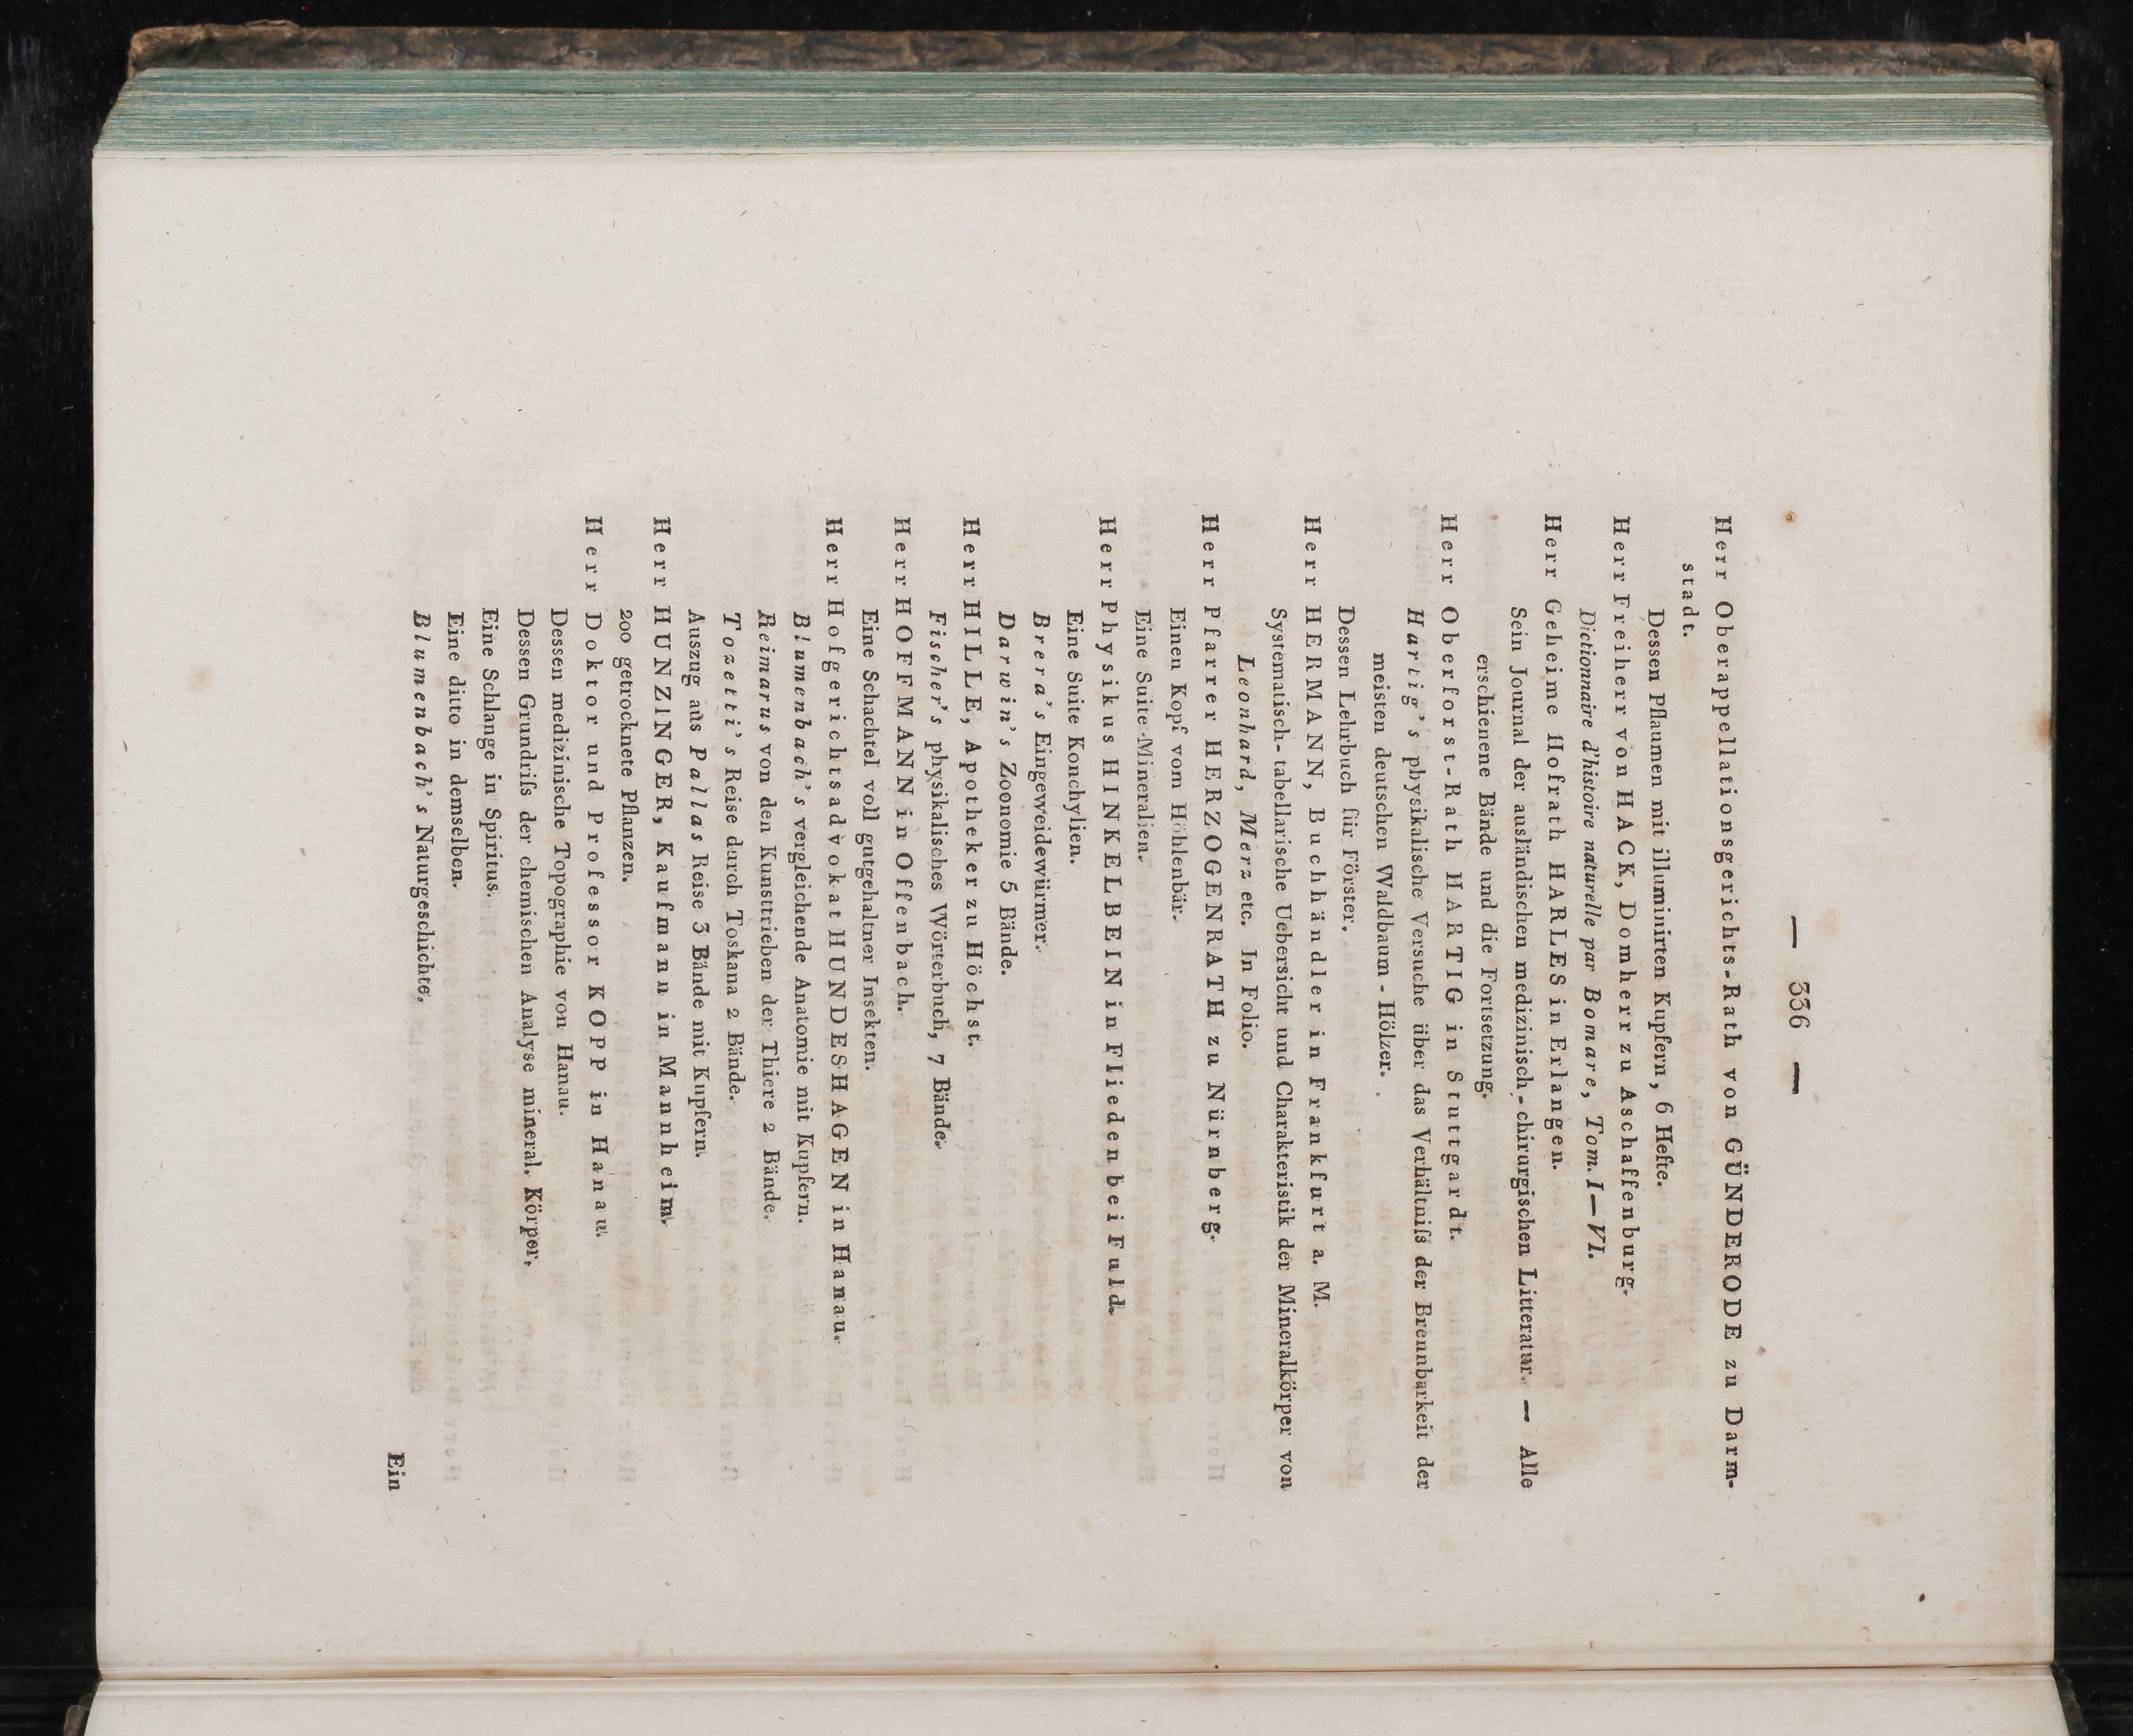 — 336 —
Herr Oberappellationsgerichts-Rath von GÜNDERODE zu Darm-
stadt.
Dessen Pflaumen mit illuminirten Kupfern, 6 Hefte.
Herr Freiherr von HACK, Domherr zu Aschaffenburg.
Dictionnaire d'histoire naturelle par Bomare, Tom. I—VI.
Herr Geheime Hofrath HARLES in Erlangen.
Sein Journal der ausländischen medizinisch-chirurgischen Litteratur. — Alle
erschienene Bände und die Fortsetzung.
Herr Oberforst-Rath HARTIG in Stuttgardt.
Hartig's physikalische Versuche über das Verhältniſs der Brennbarkeit der
meisten deutschen Waldbaum-Hölzer.
Dessen Lehrbuch für Förster.
Herr HERMANN, Buchhändler in Frankfurt a. M.
Systematisch-tabellarische Uebersicht und Charakteristik der Mineralkörper von
Leonhard, Merz etc. In Folio.
Herr Pfarrer HERZOGENRATH zu Nürnberg.
Einen Kopf vom Höhlenbär.
Eine Suite Mineralien.
Herr Physikus HINKELBEIN in Flieden bei Fuld.
Eine Suite Konchylien.
Brera's Eingeweidewürmer.
Darwin's Zoonomie 5 Bände.
Herr HILLE, Apotheker zu Höchst.
Fischer's physikalisches Wörterbuch, 7 Bände.
Herr HOFFMANN in Offenbach.
Eine Schachtel voll gutgehaltner Insekten.
Herr Hofgerichtsadvokat HUNDESHAGEN in Hanau.
Blumenbach's vergleichende Anatomie mit Kupfern.
Reimarus von den Kunsttrieben der Thiere 2 Bände.
Tozetti's Reise durch Toskana 2 Bände.
Auszug aus Pallas Reise 3 Bände mit Kupfern.
Herr HUNZINGER, Kaufmann in Mannheim.
200 getrocknete Pflanzen.
Herr Doktor und Professor KOPP in Hanau.
Dessen medizinische Topographie von Hanau.
Dessen Grundriſs der chemischen Analyse mineral. Körper.
Eine Schlange in Spiritus.
Eine ditto in demselben.
Blumenbach's Naturgeschichte.
Ein